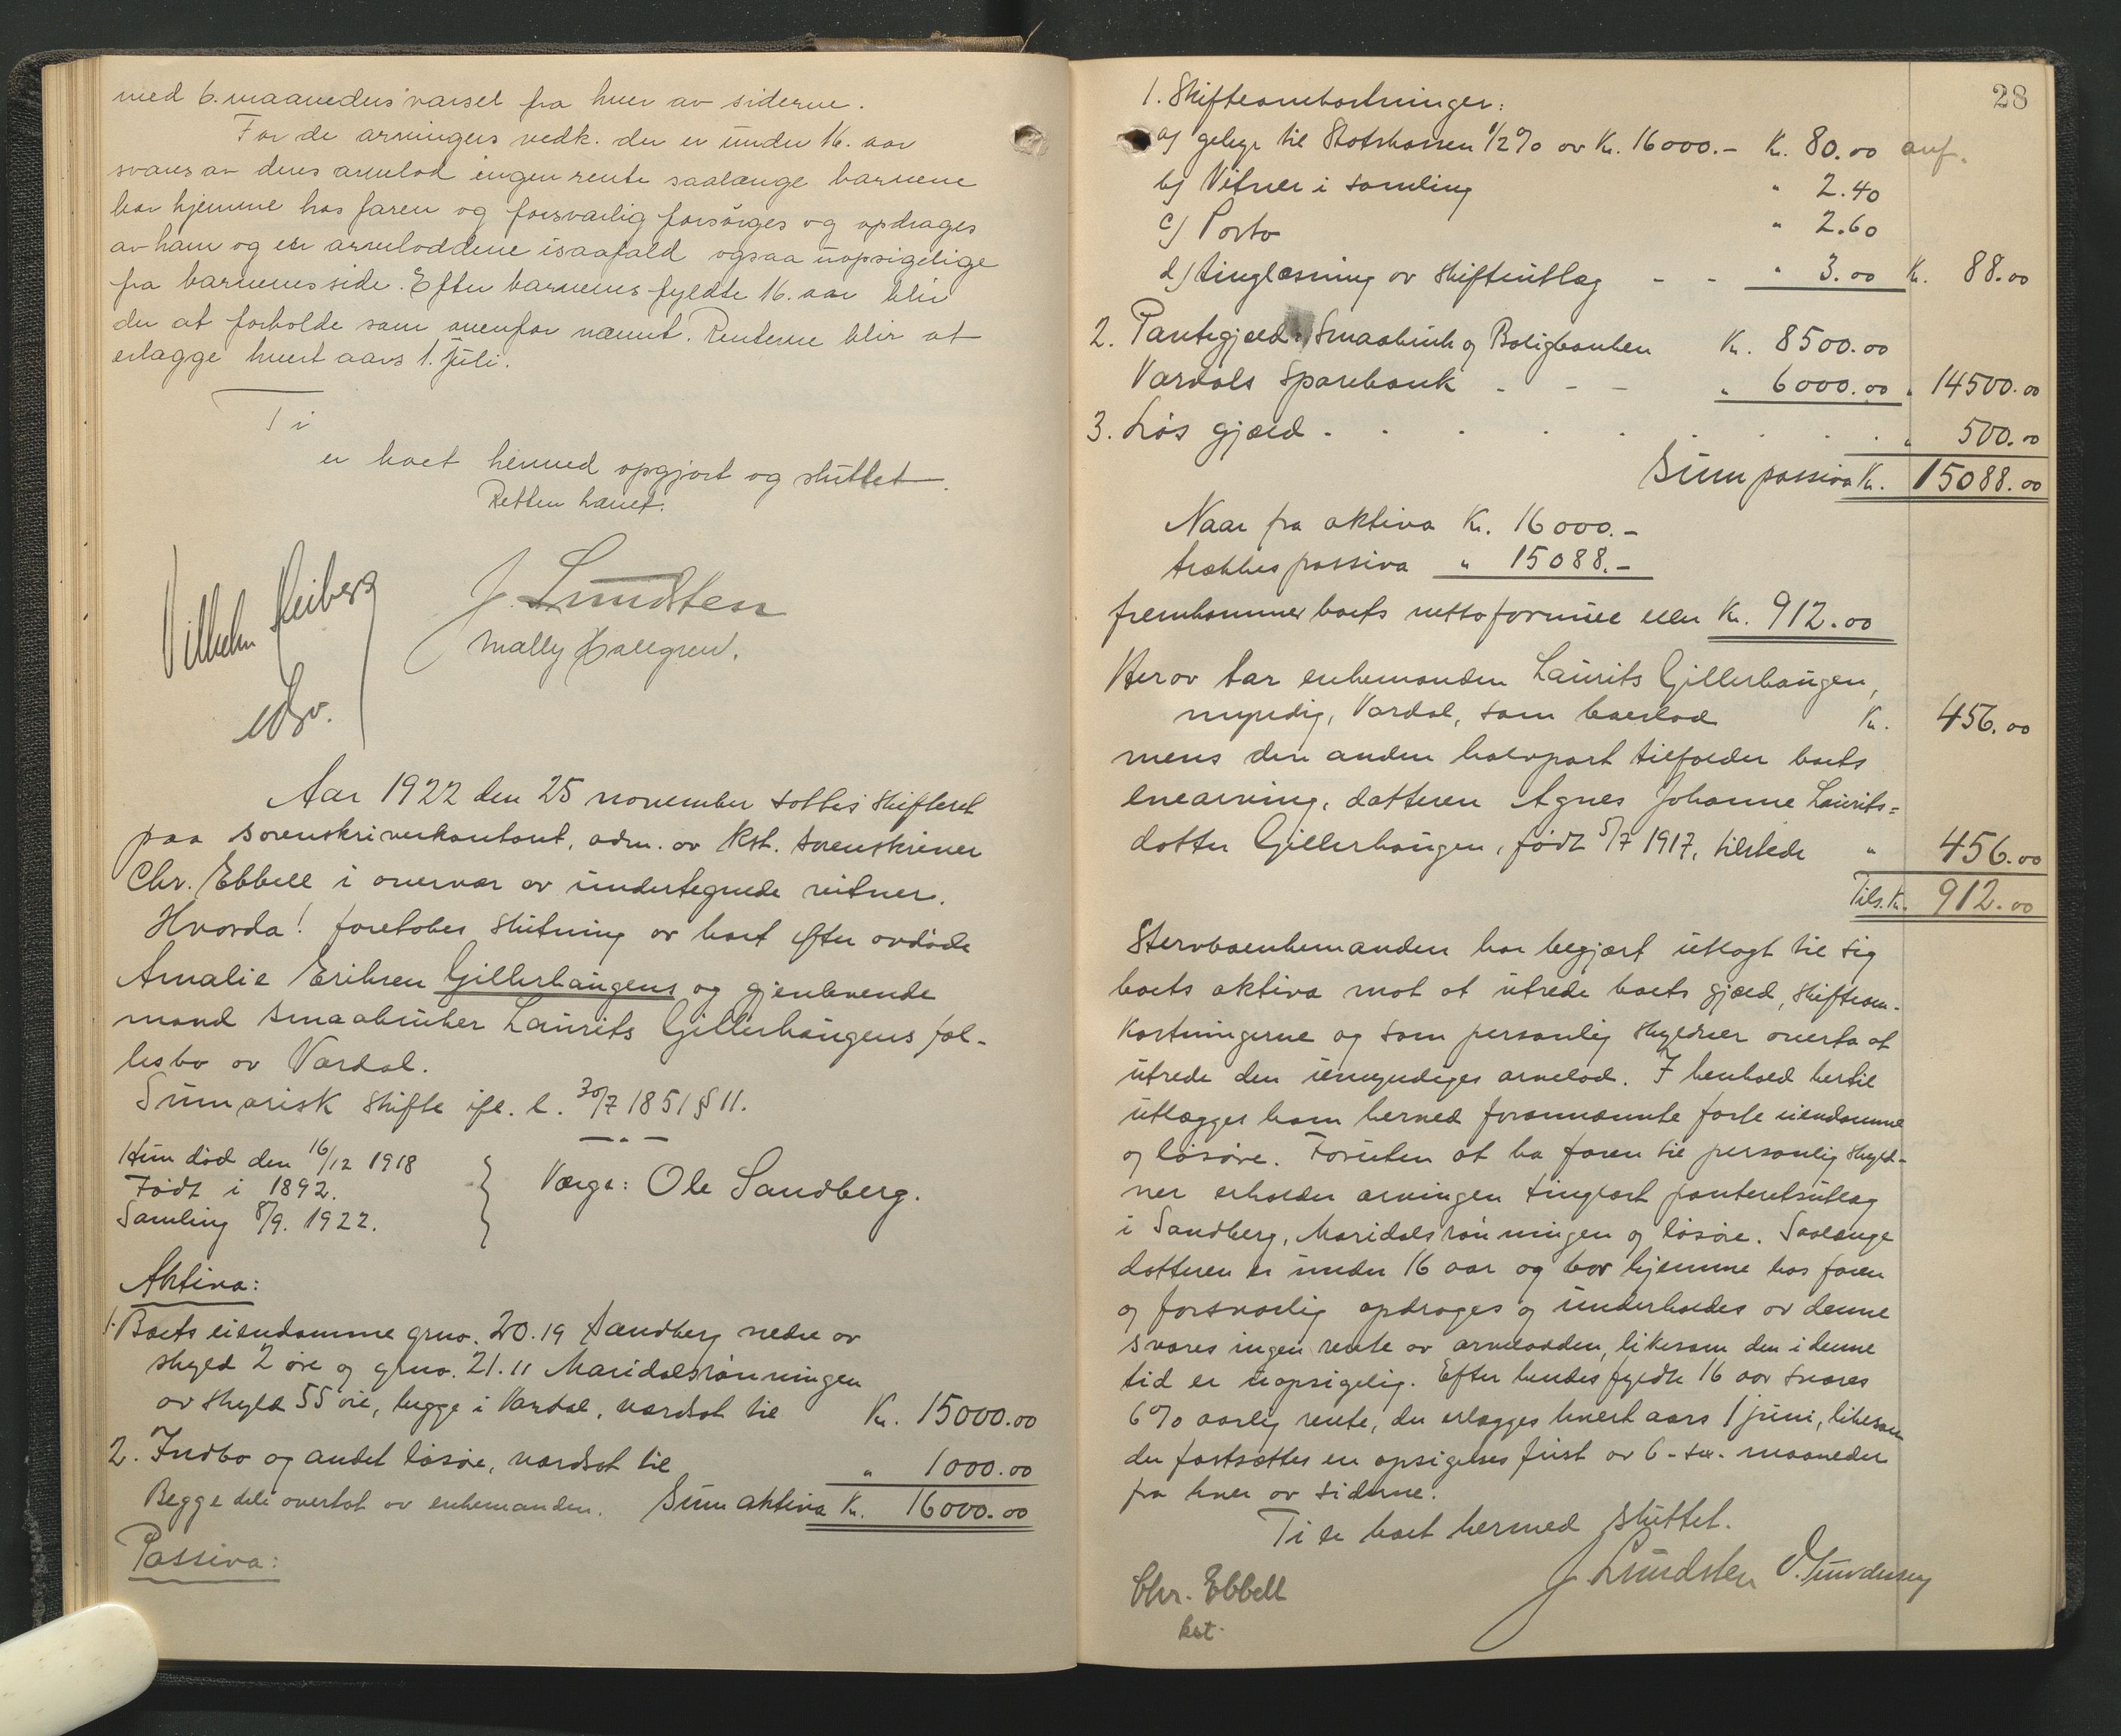 med 6. maaneders varsel fra hver av siderne.
For de arvingers vedk. der er under 16. aar
svares av deres arvelod ingen rente saalænge barnene
bor hjemme hos faren og forsvarlig forsørges og opdrages
av ham og er arveloddene isaafald ogsaa uopsigelige
fra barnenes side. Efter barnenes fyldte 16. aar blir
der at forholde som ovenfor nævnt. Renterne blir at
erlægge hvert aars 1. juli.
Ti
er boet hermed opgjort og sluttet.
Retten hævet.
Vilhelm Heiberg
J. Lundsten
Mally Hallgren.
edsv.
Aar 1922 den 25 november sattes skifteret
paa sorenskriverkontoret, adm. av kst. sorenskriver
Chr. Ebbell i overvær av undertegnede vitner.
Hvorda! foretokes slutning av boet efter avdøde
Amalie Eriksen Gillerhaugens og gjenlevende
mand smaabruker Laurits Gillerhaugens fæl-
lesbo av Vardal.
Sumarisk skifte ifl. l. 30/7 1851 § 11.
Hun død den 16/12 1918
Født i 1892.
Samling 8/9. 1922.
Værge: Ole Sandberg.
Aktiva:
1. Boets eiendomme grno. 20.19 Sandberg nedre av
skyld 2 øre og grno. 21.11 Maridalsrønningen
av skyld 55 øre, begge i Vardal, værdsat til Kr. 15000.00
2. Indbo og andet løsøre, værdsat til " 1000.00
Begge dele overtat av enkemanden. Sum aktiva Kr. 16000.00
Passiva:
28
1. Skifteomkostninger:
a) gebyr til Statskassen 1/2 % av Kr. 16000.- K. 80.00 anf.
b) Vitner i samling " 2.40
c) Porto " 2.60
d) tinglæsning av skifteutlæg - - " 3.00 Kr. 88.00
2. Pantegjæld: Smaabruk og Boligbanken Kr. 8500.00
Vardals Sparebank - - - " 6000.00 " 14500.00
3. Løs gjæld - - - - - - - " 500.00
Sum passiva Kr. 15088.00
Naar fra aktiva Kr. 16000.-
trækkes passiva " 15088.-
fremkommer boets nettoformue eller Kr. 912.00
Herav tar enkemanden Laurits Gillerhaugen,
myndig, Vardal, som boeslod Kr. 456.00
mens den anden halvpart tilfalder boets
enearving, datteren Agnes Johanne Laurits=
datter Gillerhaugen, født 5/7 1917, tilstede " 456.00
Tils. Kr. 912.00
Stervboenkemanden har begjært utlagt til sig
boets aktiva mot at utrede boets gjæld, skifteom-
kostningerne og som personlig skyldner overta at
utrede den umyndiges arvelod. I henhold hertil
utlægges ham herved forannævnte faste eiendomme
og løsøre. Foruten at ha faren til personlig skyld-
ner erholder arvingen tinglæst panteretsutlæg
i Sandberg, Maridalsrønningen og løsøre. Saalænge
datteren er under 16 aar og bor hjemme hos faren
og forsvarlig opdrages og underholdes av denne
svares ingen rente av arvelodden, likesom den i denne
tid er uopsigelig. Efter hendes fyldte 16 aar svares
6% aarlig rente, der erlægges hvert aars 1 juni, likesom
der fastsættes en opsigelses frist av 6 - sex - maaneder
fra hver av siderne.
Ti er boet hermed sluttet.
Chr. Ebbell
kst.
J. Lundsten